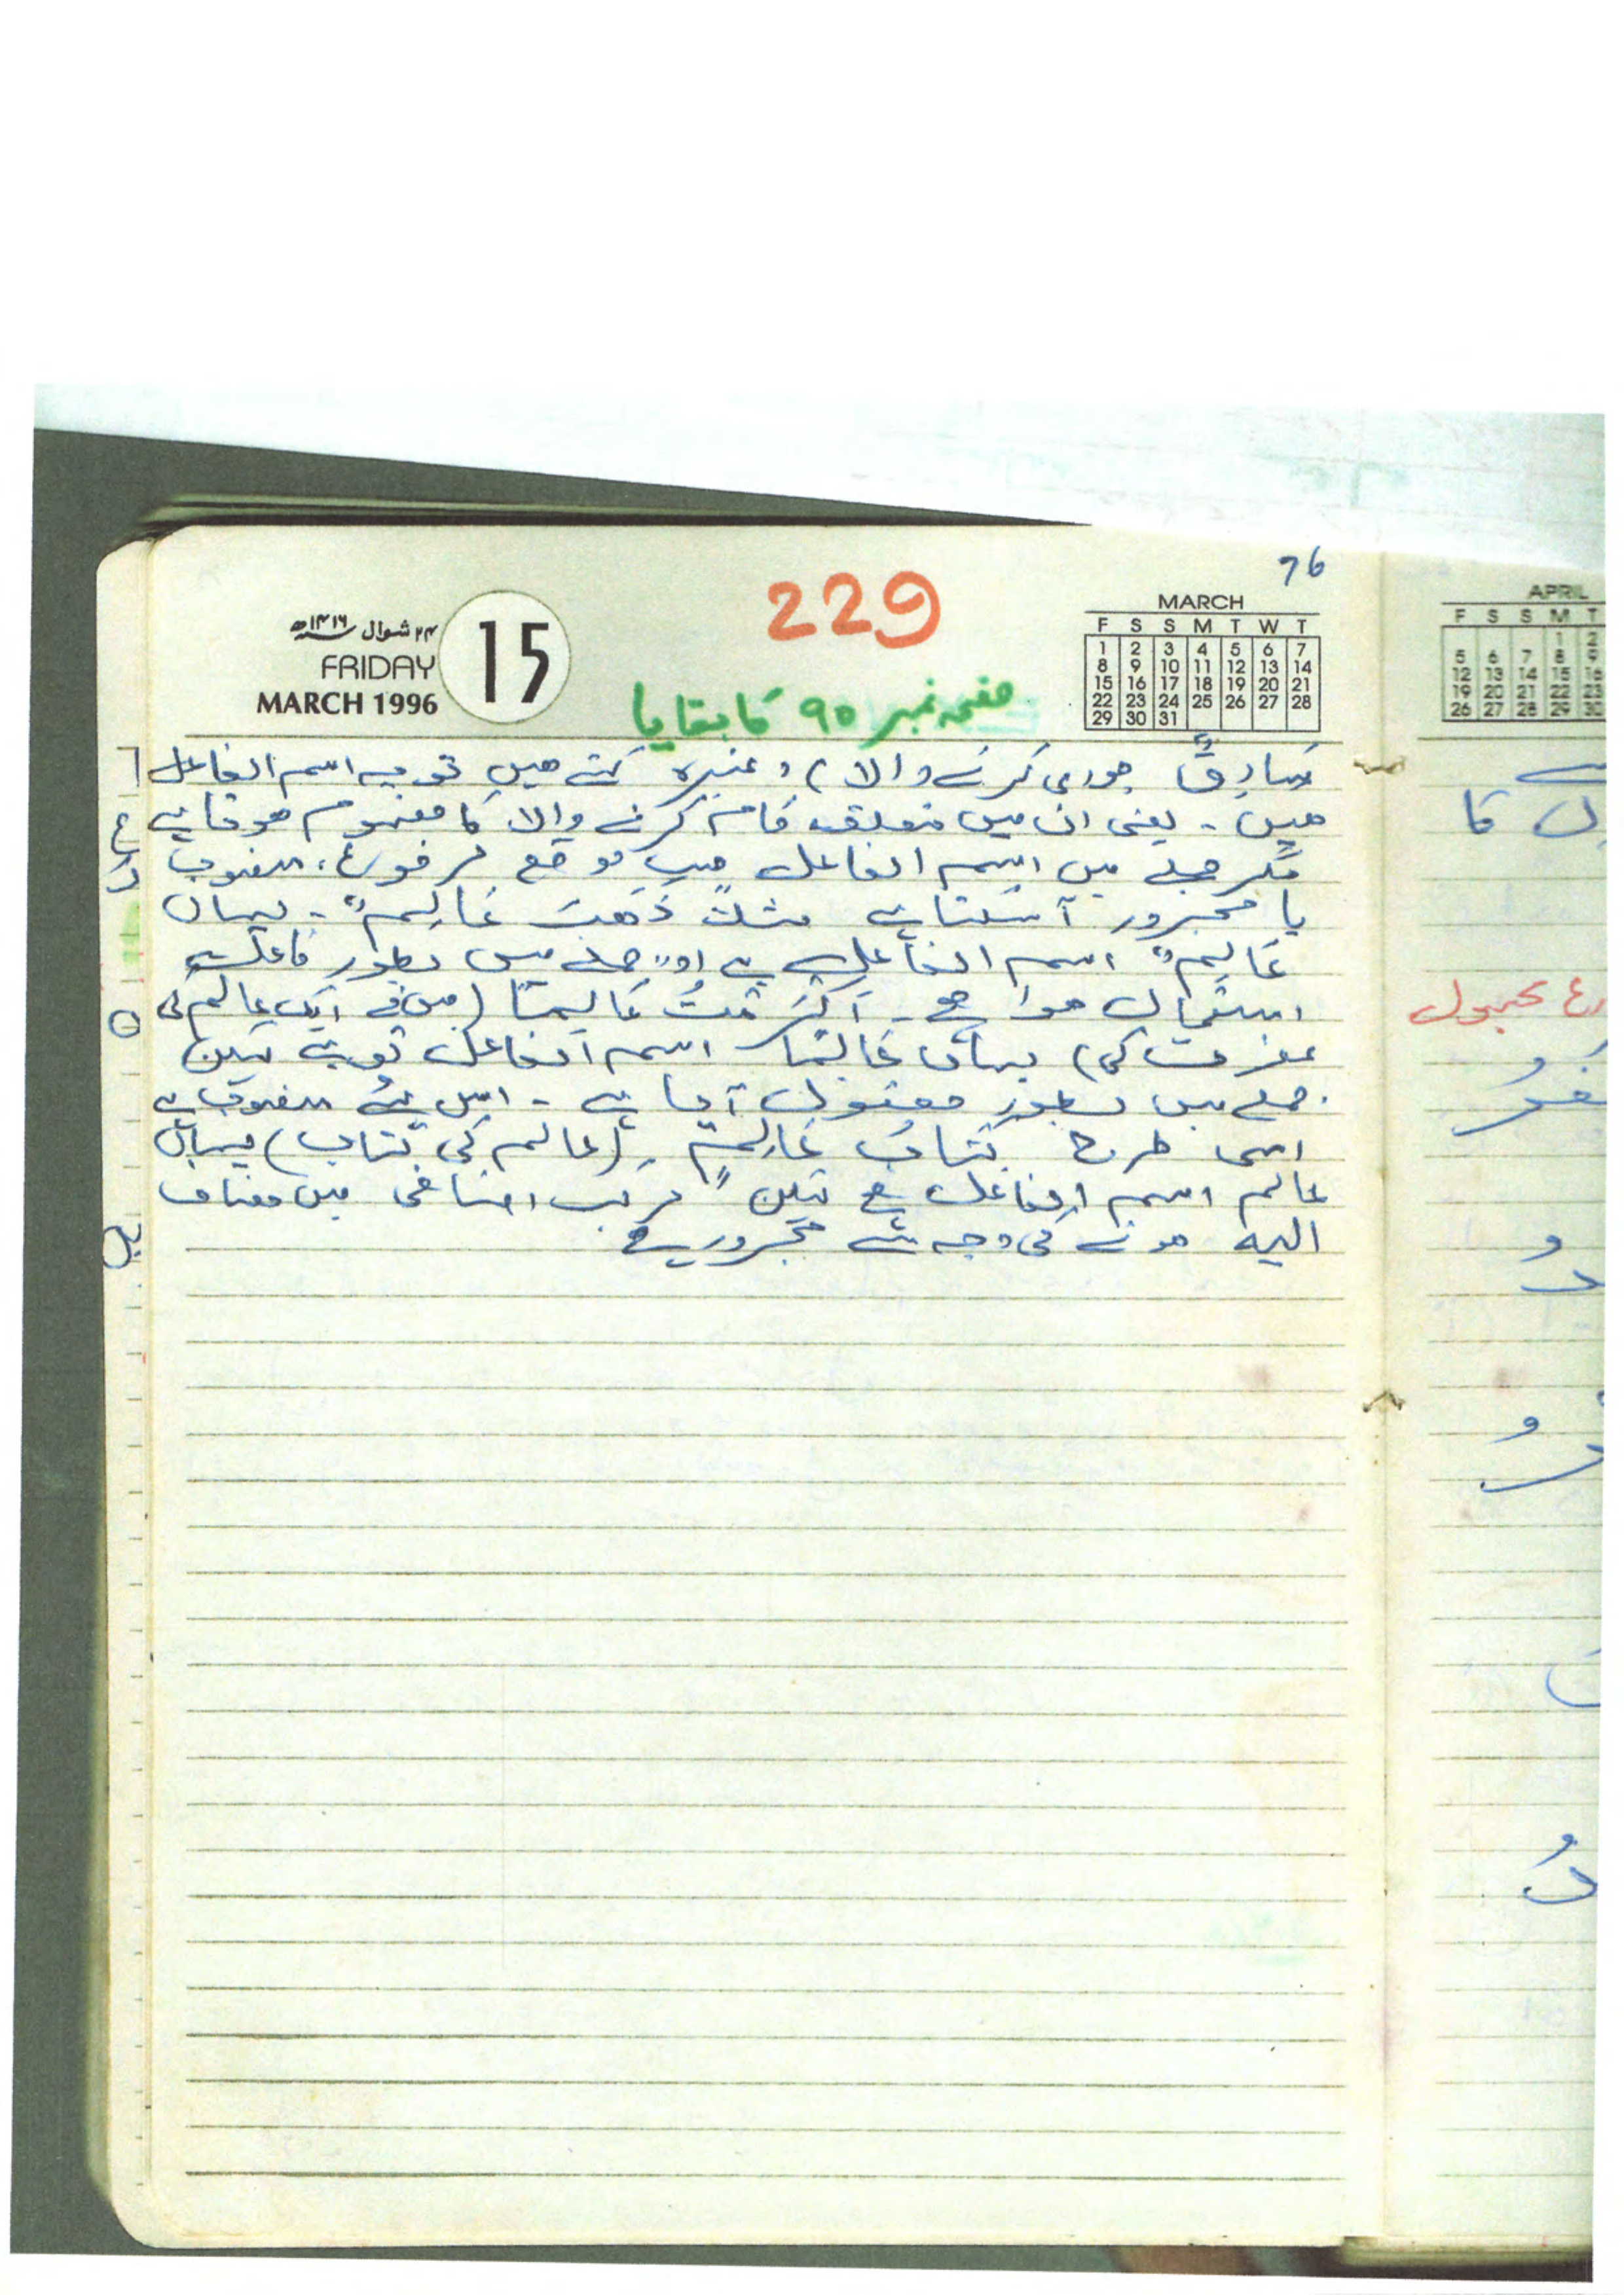 76
229
۲۴ شوال ۱۴۱۶ھ
FRIDAY
MARCH 1996
15
MARCH
F S S M T W T
1 2 3 4 5 6 7
8 9 10 11 12 13 14
15 16 17 18 19 20 21
22 23 24 25 26 27 28
29 30 31
صفحہ نمبر ۹۵ کا بقایا
سَارِقٌ چوری کرنے والا) وغیرہ کہتے ھیں تو یہ اسم الفاعل
ھیں ۔ یعنی ان میں متعلقہ کام کرنے والا کا مفہوم ھوتا ہے
مگر جملے میں اسم الفاعل حسبِ موقع مرفوع، منصوب
یا مجرور آ سکتا ہے مثلاً ذَھَبَ عَالِمٌ ۔ یہاں
عَالِمٌ اسم الفاعل ہے اور جملے میں بطور فاعل
استعمال ھوا ھے ۔ اَکْرَمْتُ عَالِمًا (میں نے ایک عالم کی
عزت کی) یہاں عَالِمًا اسم الفاعل تو ہے لیکن
جملے میں بطور مفعول آیا ہے ۔ اس لئے منصوب ہے
اسی طرح کتابُ عَالِمٍ ۔ (عالم کی کتاب) یہاں
عالم اسم الفاعل ھے لیکن مرکب اضافی میں مضاف
الیہ ھونے کی وجہ سے مجرور ہے
APRIL
F S S M T
1 2
5 6 7 8 9
12 13 14 15 16
19 20 21 22 23
26 27 28 29 30
مجہول